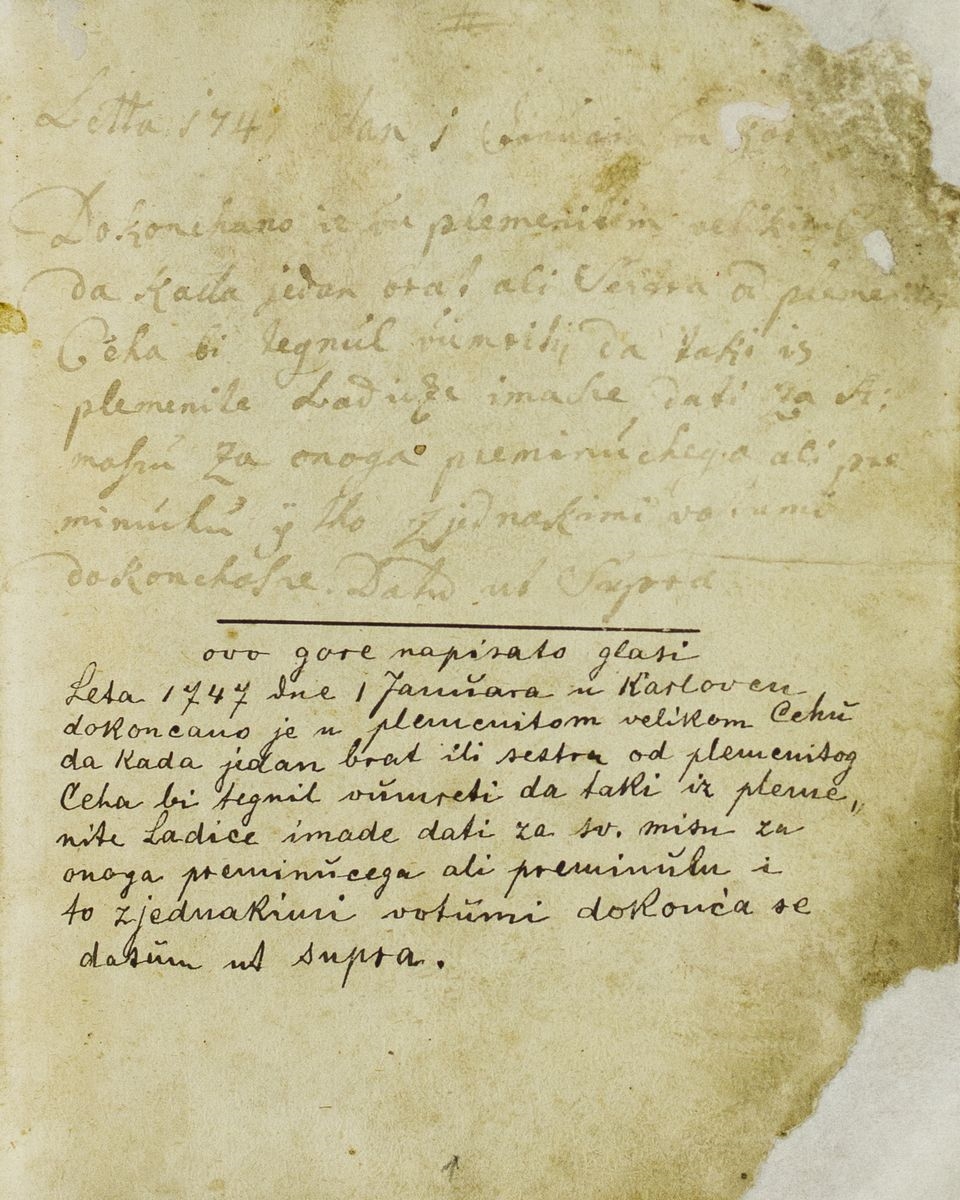 Letta 174 dan 1
Dokonchano ie vu plemenitim velikim
da kada jedan brat ali Sestra od plemenitog
Ceha bi tegnul vumriti da taki is
plemenite Ladicze imasse dati za S:
massu za onoga preminuchega ali pre
minuchu y tho zjednakimi votumi
dokonchasse. Datu ut Supra
ovo gore napisato glasi
Leta 1747 dne 1 Januara u Karlovcu,
dokoncano je u plemenitom velikom Cehu
da kada jedan brat ili sestra od plemenitog
Ceha bi tegnil vumreti da taki iz pleme„
nite Ladice imade dati za sv. misu za
onoga preminucega ali preminulu i
to zjednakimi votumi dokonča se
datum ut supra.
1